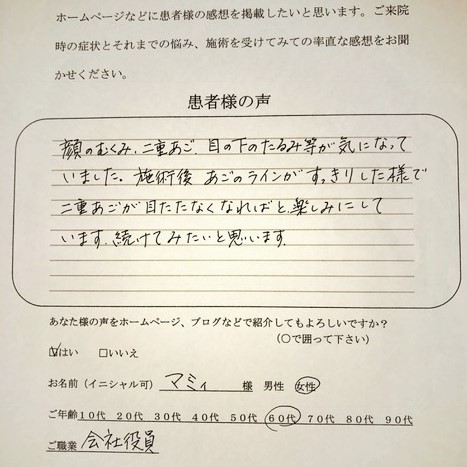 ホームページなどに患者様の感想を掲載したいと思います。ご来院
時の症状とそれまでの悩み、施術を受けてみての率直な感想をお聞
かせください。
患者様の声
顔のむくみ、二重あご、目の下のたるみ等が気になって
いました。施術後 あごのラインがすっきりした様で
二重あごが目たたなくなればと、楽しみにして
います。続けてみたいと思います。
あなた様の声をホームページ、ブログなどで紹介してもよろしいですか?
(〇で囲って下さい)
☑はい □いいえ
お名前(イニシャル可) マミィ 様 男性 女性
ご年齢 10代 20代 30代 40代 50代 60代 70代 80代 90代
ご職業 会社役員